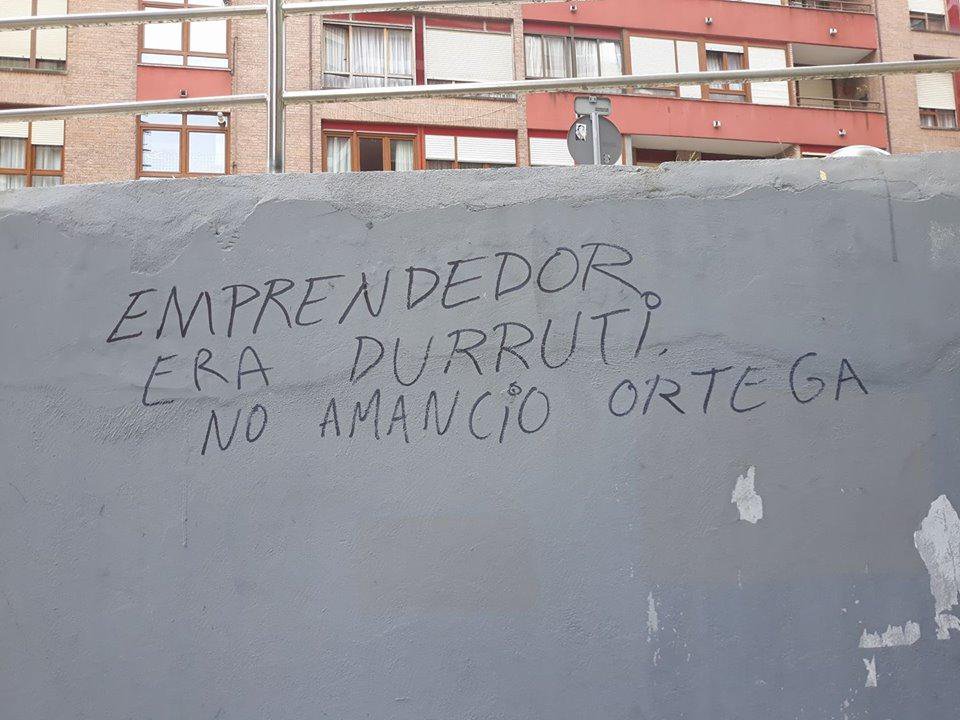 EMPRENDEDOR,
ERA DURRUTi.
NO AMANCiO ORTEGA